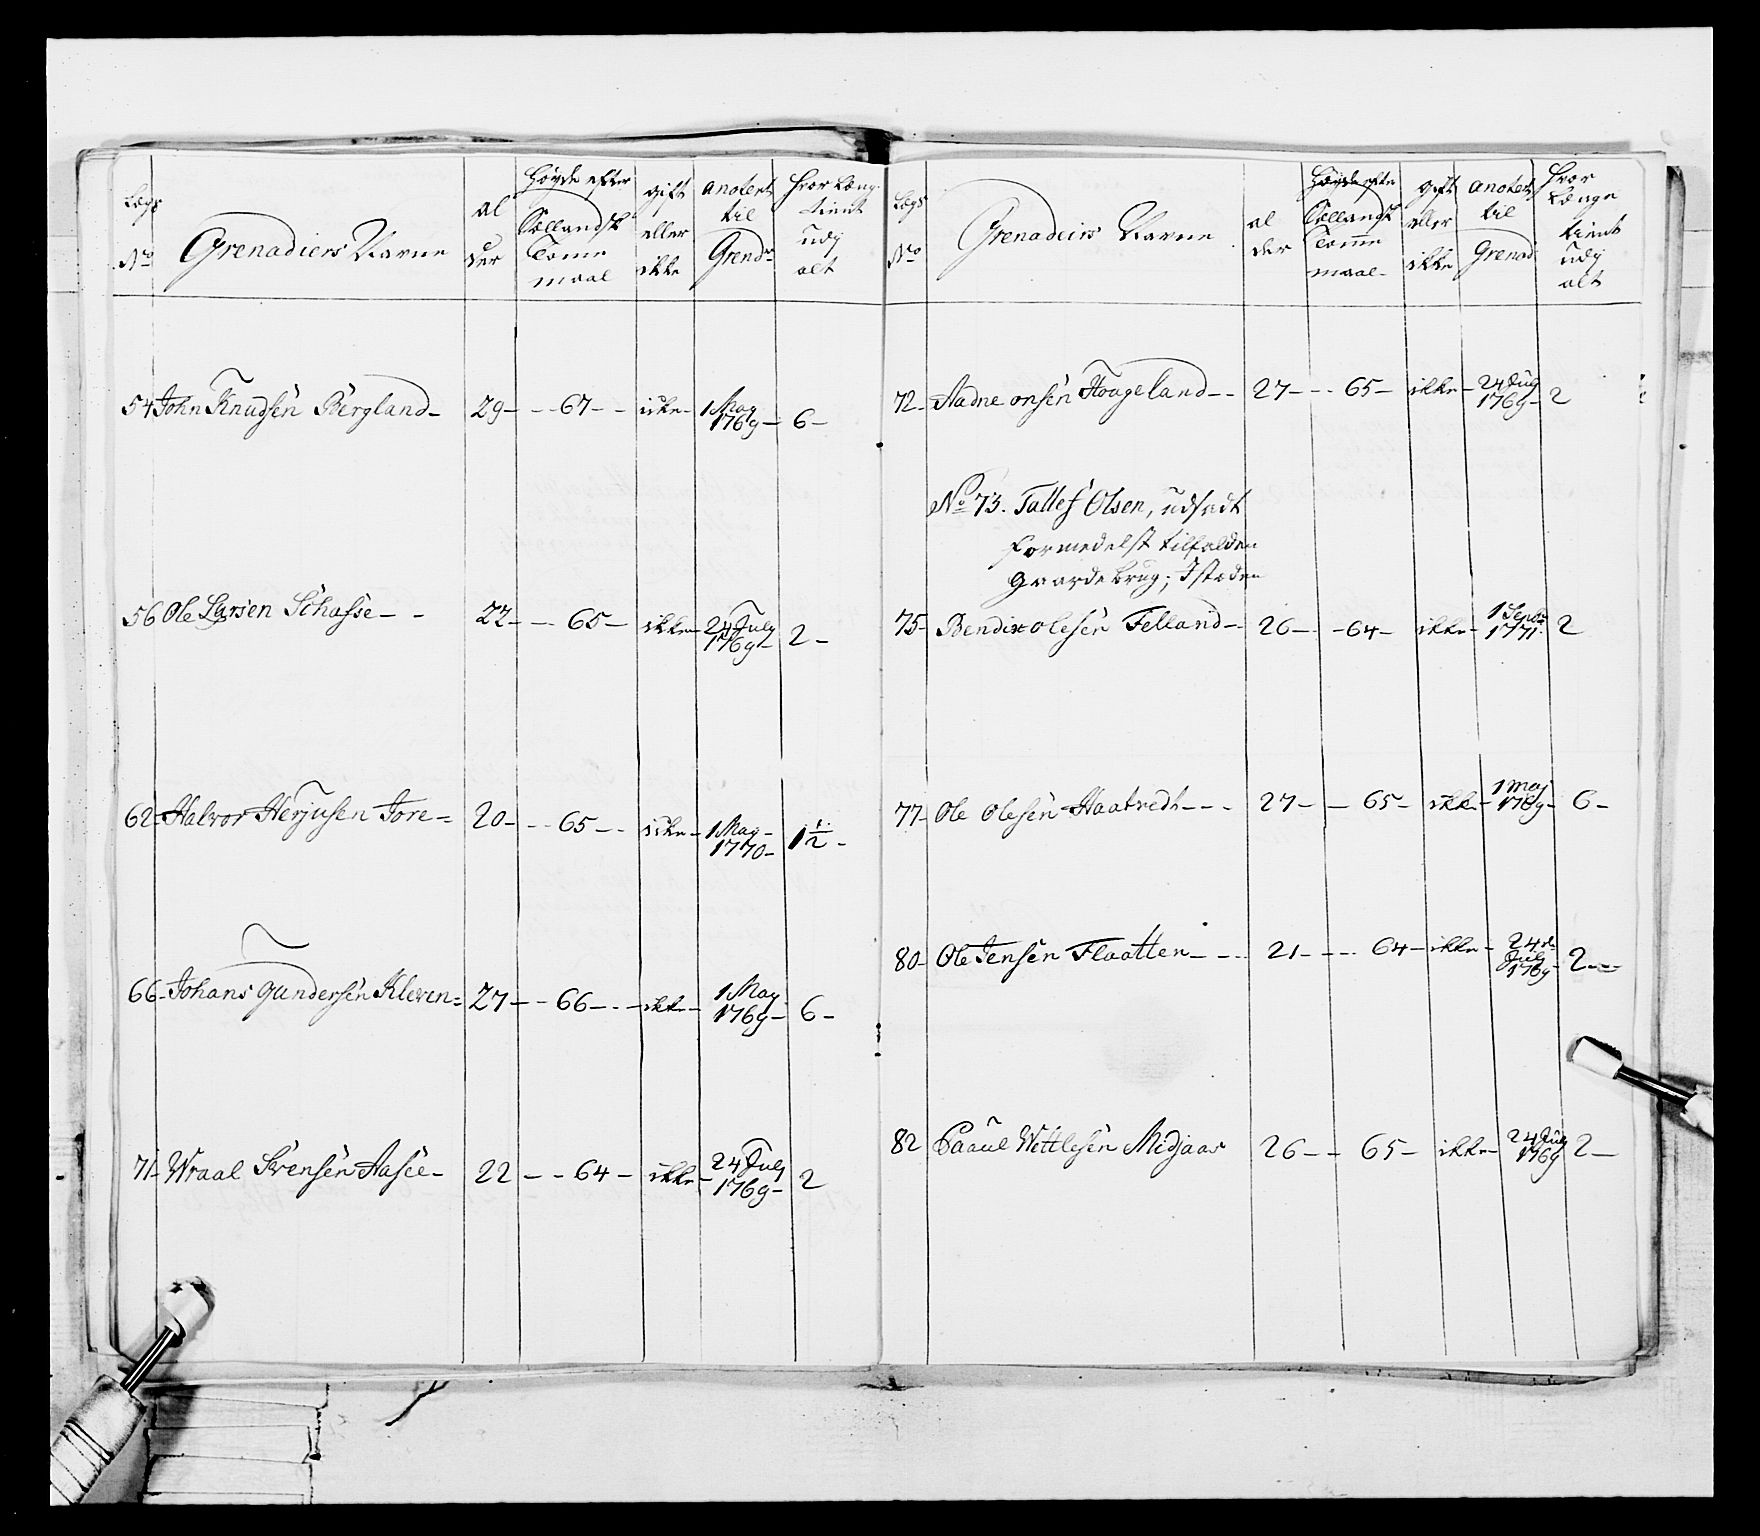 Lægs
No
Grenadiers Navne
al
der
Høyde efter
Siællandsk
Tome
maal
gift
eller
ikke
anotert
til
Grend:
hvor læng
tient
udj
alt
54 John Knudsen Bergland – 29 – 67 – ikke – 1 May 1769 – 6 –
56 Ole Larsen Schasse – – 22 – 65 – ikke – 24 July 1769 – 2 –
62 Halvor Herjusen Tore = 20 – 65 – ikke – 1 May 1770 – 1 1/2 –
66 Johans Gundersen Kleven = 27 – 66 – ikke – 1 May 1769 – 6 –
71 Wraal Svensen Aasee – 22 – 64 – ikke – 24 July 1769 – 2
Lægs
No
Grenadeirs Navne
al
der
Høyde efter
Siællandsk
Tome
maal
gift
eller
ikke
anotert
til
Grenad
hvor
længe
tient
udj
alt
72 Aadne onsen Haageland – – 27 – 65 – ikke – 24 July 1769 – 2
No 73. Tallef Olsen, udsadt
formedelst tilfalden
gaardebrug; Istæden
75 Bendix olesen Felland – 26 – 64 – ikke – 1 Septr 1771. 2
77 Ole Olesen Haatvedt – – – 27 – 65 – ikke – 1 Maj 1769 – 6 –
80 Ole Jensen Flaatten – – – 21 – 64 – ikke – 24 de July 1769 – 2 –
82 Paaul Wettlesen Midjaas 26 – 65 – ikke – 24 July 1769 2 –